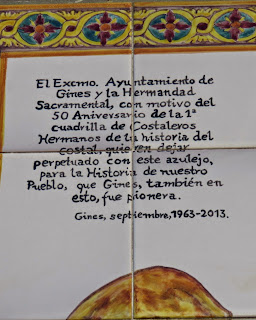 El Excmo. Ayuntamiento de
Gines y la Hermandad
Sacramental, con motivo del
50 Aniversario de la 1ª
cuadrilla de Costaleros
Hermanos de la historia del
costal, quieren dejar
perpetuado con este azulejo,
para la Historia de nuestro
Pueblo, que Gines, también en
esto, fue pionera.
Gines, septiembre, 1963-2013.